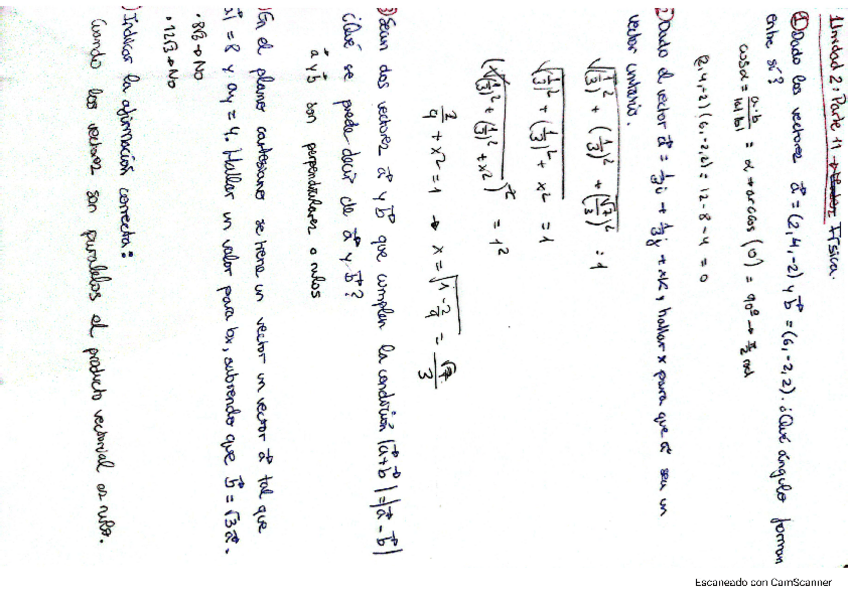 Unidad 2: Parte 1 → Física.
① Dado los vectores a⃗ = (2, 4, -2) y b⃗ = (6, -2, 2). ¿Qué ángulo forman
entre sí?
cosα = a·b / |a||b| = α → arccos (0) = 90º → π/2 rad
(2, 4, -2) (6, -2, 2) = 12 - 8 - 4 = 0
② Dado el vector a⃗ = 1/3 i + 1/3 j + xk, hallar x para que a⃗ sea un
vector unitario.
√((1/3)² + (1/3)² + (√7/3)²) = 1
√((1/3)² + (1/3)² + x²) = 1
(√((1/3)² + (1/3)² + x²))² = 1²
2/9 + x² = 1 → x = √(1 - 2/9) = √7/3
③ Sean dos vectores a⃗ y b⃗ que cumplen la condición |a⃗ + b⃗| = |a⃗ - b⃗|
¿Qué se puede decir de a⃗ y b⃗?
a⃗ y b⃗ son perpendiculares o nulos
) En el plano cartesiano se tiene un vector un vector a⃗ tal que
| = 8 y ay = 4. Hallar un valor para bx, sabiendo que b⃗ = √3 a⃗.
· 8√3 → No
· 12√3 → No
) Indicar la afirmación correcta:
Cuando los vectores son paralelos el producto vectorial es nulo.
Escaneado con CamScanner